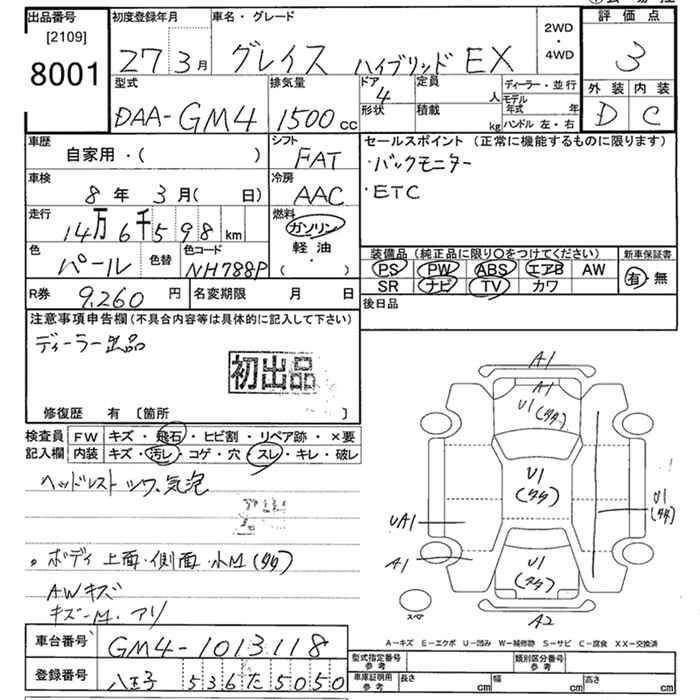 出品番号
[2109]
8001
初度登録年月
27 3月
車名・グレード
グレイス ハイブリッド EX
2WD
・
4WD
評価点
3
外装 内装
D C
型式
DAA-GM4
排気量
1500cc
ドア
4
形状
定員
人
積載
kg
ディーラー・並行
モデル年式 年
ハンドル 左・右
車歴
自家用・( )
シフト
FAT
セールスポイント (正常に機能するものに限ります)
・バックモニター
・ETC
車検
8年 3月( 日)
冷房
AAC
走行
14万6千598km
燃料
ガソリン
軽油
( ・ )
色
パール
色替
色コード
NH788P
装備品(純正品に限り○をつけてください)
PS PW ABS エアB AW
SR ナビ TV カワ
新車保証書
有・無
R券 9,260円
名変期限 月 日
後日品
注意事項申告欄(不具合内容等は具体的に記入して下さい)
ディーラー出品
初出品
修復歴 有 〔箇所 〕
検査員
記入欄
FW キズ・飛石・ヒビ割・リペア跡・×要
内装 キズ・汚レ・コゲ・穴・スレ・キレ・破レ
ヘッドレスト シワ、気泡
ボディ 上面・側面・小M(タタ)
AWキズ
キズ-M・アリ
A1
A1
U1(タタ)
U1
(タタ)
U1
(タタ)
UA1
A1
U1
(タタ)
A2
スペア
A-キズ E-エクボ U-凹み W-補修跡 S-サビ C-腐食 XX-交換済
車台番号 GM4-1013118
登録番号 八王子 536 た 5050
型式指定番号
参考
類別区分番号
参考
車庫証明用
参考
長さ cm
幅 cm
高さ cm